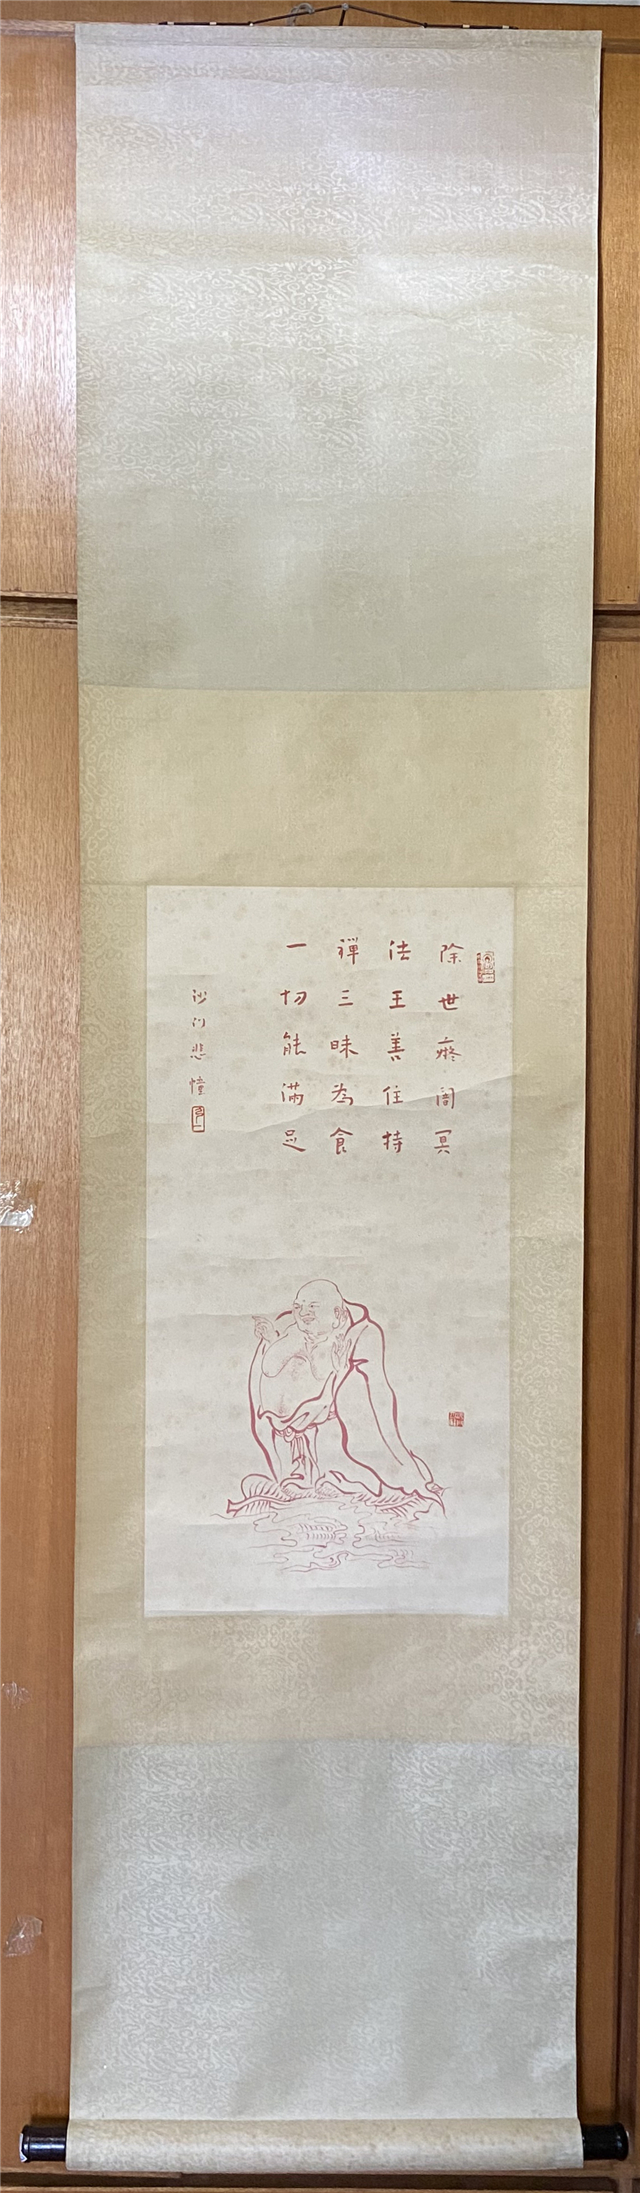 除世癡闇冥
法王善住持
禪三昧為食
一切能滿足
沙門悲幢